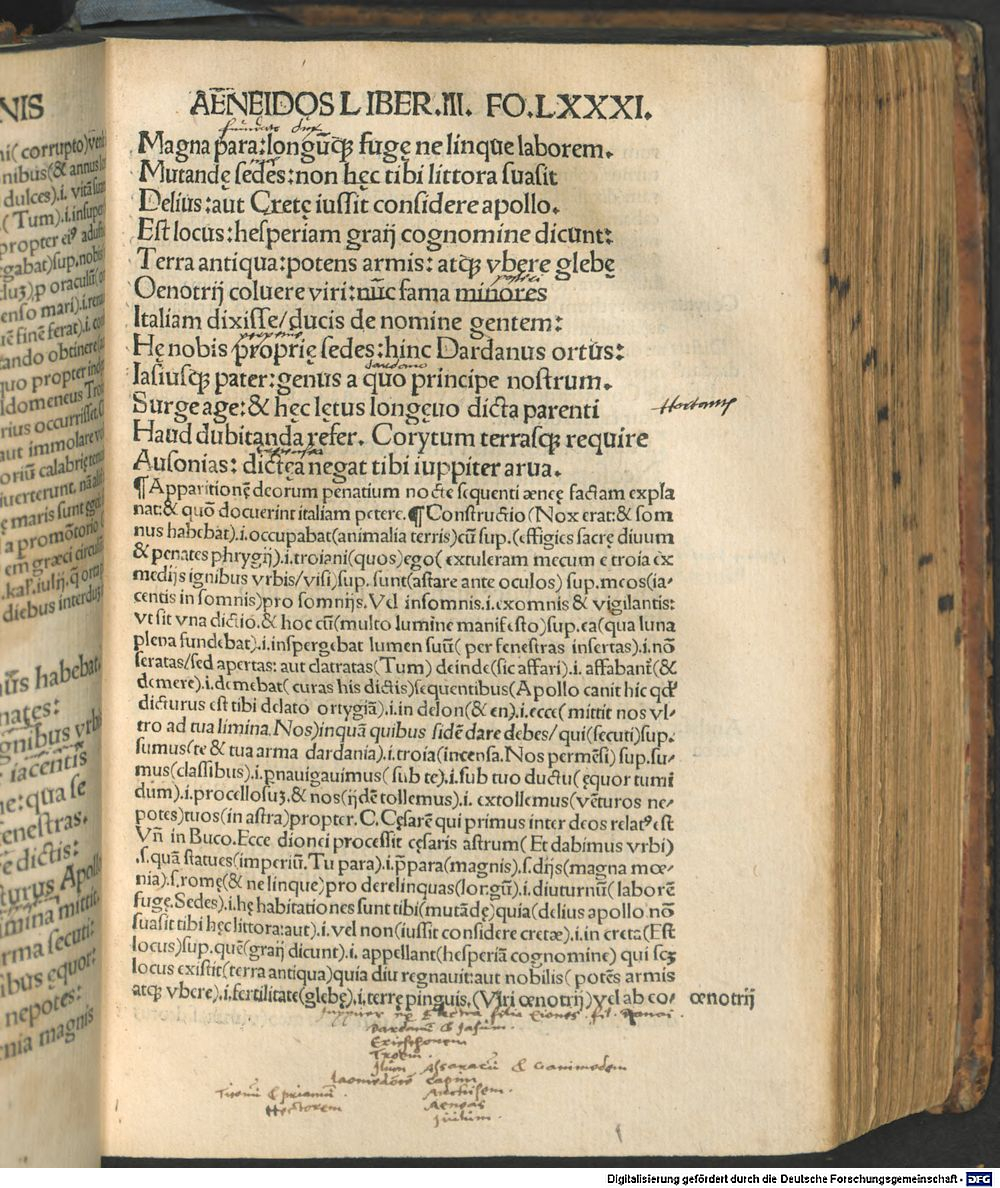 NIS
AEÑEIDOS LIBER.III. FO.LXXXI.
Magna para:longũq; fugę ne linque laborem.
Mutandę sedes:non hęc tibi littora suasit
Delius:aut Cretę iussit considere apollo.
Est locus:hesperiam graij cognomine dicunt:
Terra antiqua:potens armis: atq; vbere glebę
Oenotrij coluere viri:nũc fama minores
Italiam dixisse/ducis de nomine gentem:
Hę nobis proprię sedes:hinc Dardanus ortus:
Iasiusq; pater:genus a quo principe nostrum.
Surge age:& hęc lętus longęuo dicta parenti
Haud dubitanda refer. Corytum terrasq; require
Ausonias: dictęa negat tibi iuppiter arua.
¶Apparitionẽ deorum penatium nocte sequenti æneę factam expla
nat:& quõ docuerint italiam petere.¶Constructio(Nox erat:& som
nus habebat).i.occupabat(animalia terris)cũ sup.(effigies sacrę diuum
& penates phrygij).i.troiani(quos)ego(extuleram mecum e troia ex
medijs ignibus vrbis/visi)sup. sunt(astare ante oculos) sup.meos(ia⸗
centis in somnis)pro somnijs. Vel insomnis.i.exomnis & vigilantis:
vt sit vna dictio.& hoc cũ(multo lumine manifesto)sup.ea(qua luna
plena fundebat).i.inspergebat lumen suũ( per fenestras insertas).i.nõ
seratas/sed apertas: aut clatratas(Tum) deinde(sic affari).i. affabant̃(&
demere).i.demebat( curas his dictis)sequentibus(Apollo canit hic qd̓
dicturus est tibi delato ortygiã).i.in delon(& en).i.ecce( mittit nos vl⸗
tro ad tua limina. Nos)inquã quibus fidẽ dare debes/ qui(secuti)sup.
sumus(te & tua arma dardania).i.troia(incensa. Nos permẽsi) sup.su⸗
mus(classibus).i.p̱nauigauimus( sub te).i.sub tuo ductu( ęquor tumi
dum).i.procellosuʒ.& nos(ijdẽ tollemus).i. extollemus(vẽturos ne⸗
potes)tuos(in astra)propter.C.Cęsarẽ qui primus inter deos relatꝰ est
Vñ in Buco.Ecce dionei processit cęsaris astrum( Et dabimus vrbi)
.s.quã statues(imperiũ. Tu para).i.p̃para(magnis).s.dijs(magna mœ⸗
nia).s.romę(& ne linque)pro derelinquas(longũ).i.diuturnũ( laborẽ
fugę.Sedes).i.hę habitationes sunt tibi(mutãdę)quia(delius apollo nõ
suasit tibi hęc littora:aut).i.vel non(iussit considere cretæ).i.in creta(Est
locus)sup.quẽ(graij dicunt).i. appellant(hesperiã cognomine) qui scʒ
locus existit(terra antiqua)quia diu regnauit:aut nobilis( potẽs armis
atq; vbere).i.fertilitate(glebę).i.terrę pinguis. (Viri œnotrij)vel ab eo⸗
œnotrij
Dardanũ & Jasium.
Ericthonem
Troem.
Ilum Assaracũ & Ganimedem
Laomedontẽ Capim
Anchisem.
Hectorem
Aeneas
Julium.
ni( corrupto)
nibus(& annus
dulces).i. vitã
(Tum).i.insuper
gnibus vrbi
iacentis
fenestras.
dictis:
nepotes:
enia magnis
Digitalisierung gefördert durch die Deutsche Forschungsgemeinschaft - DFG